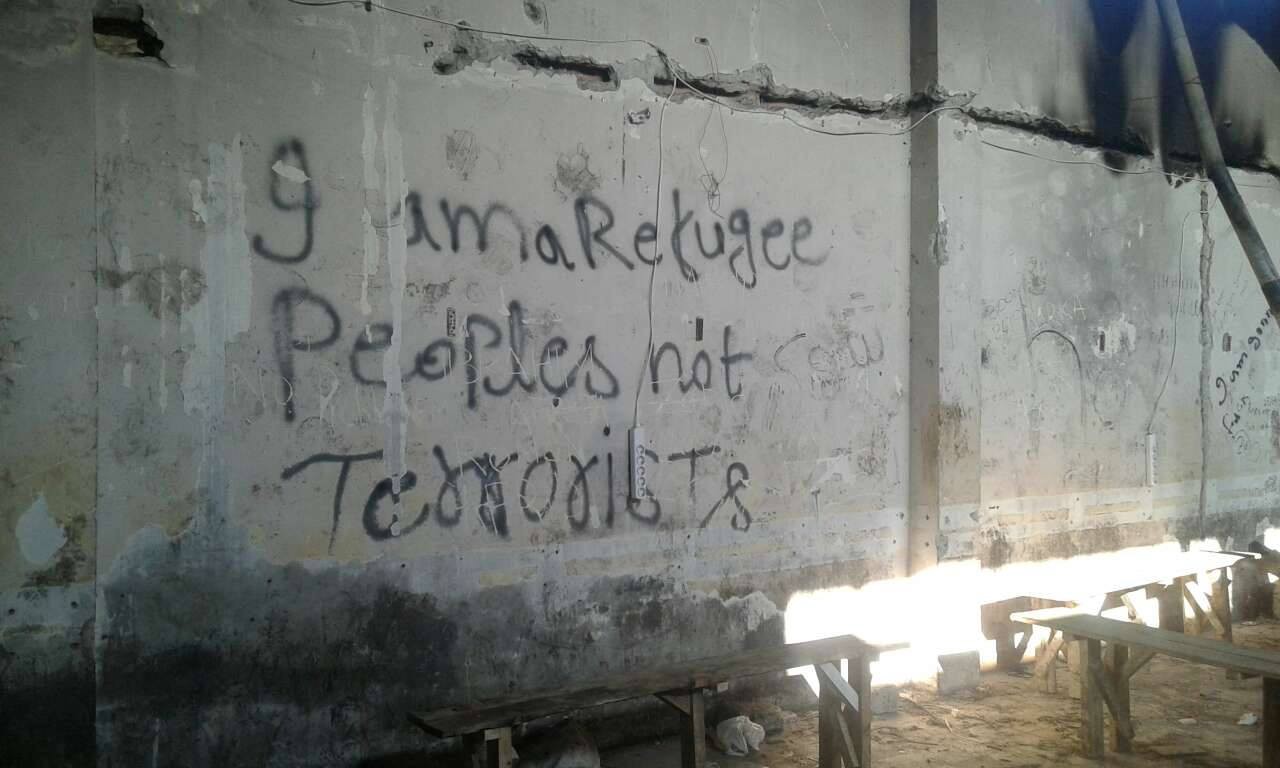 I am a Refugee
Peoples not
Terrorists